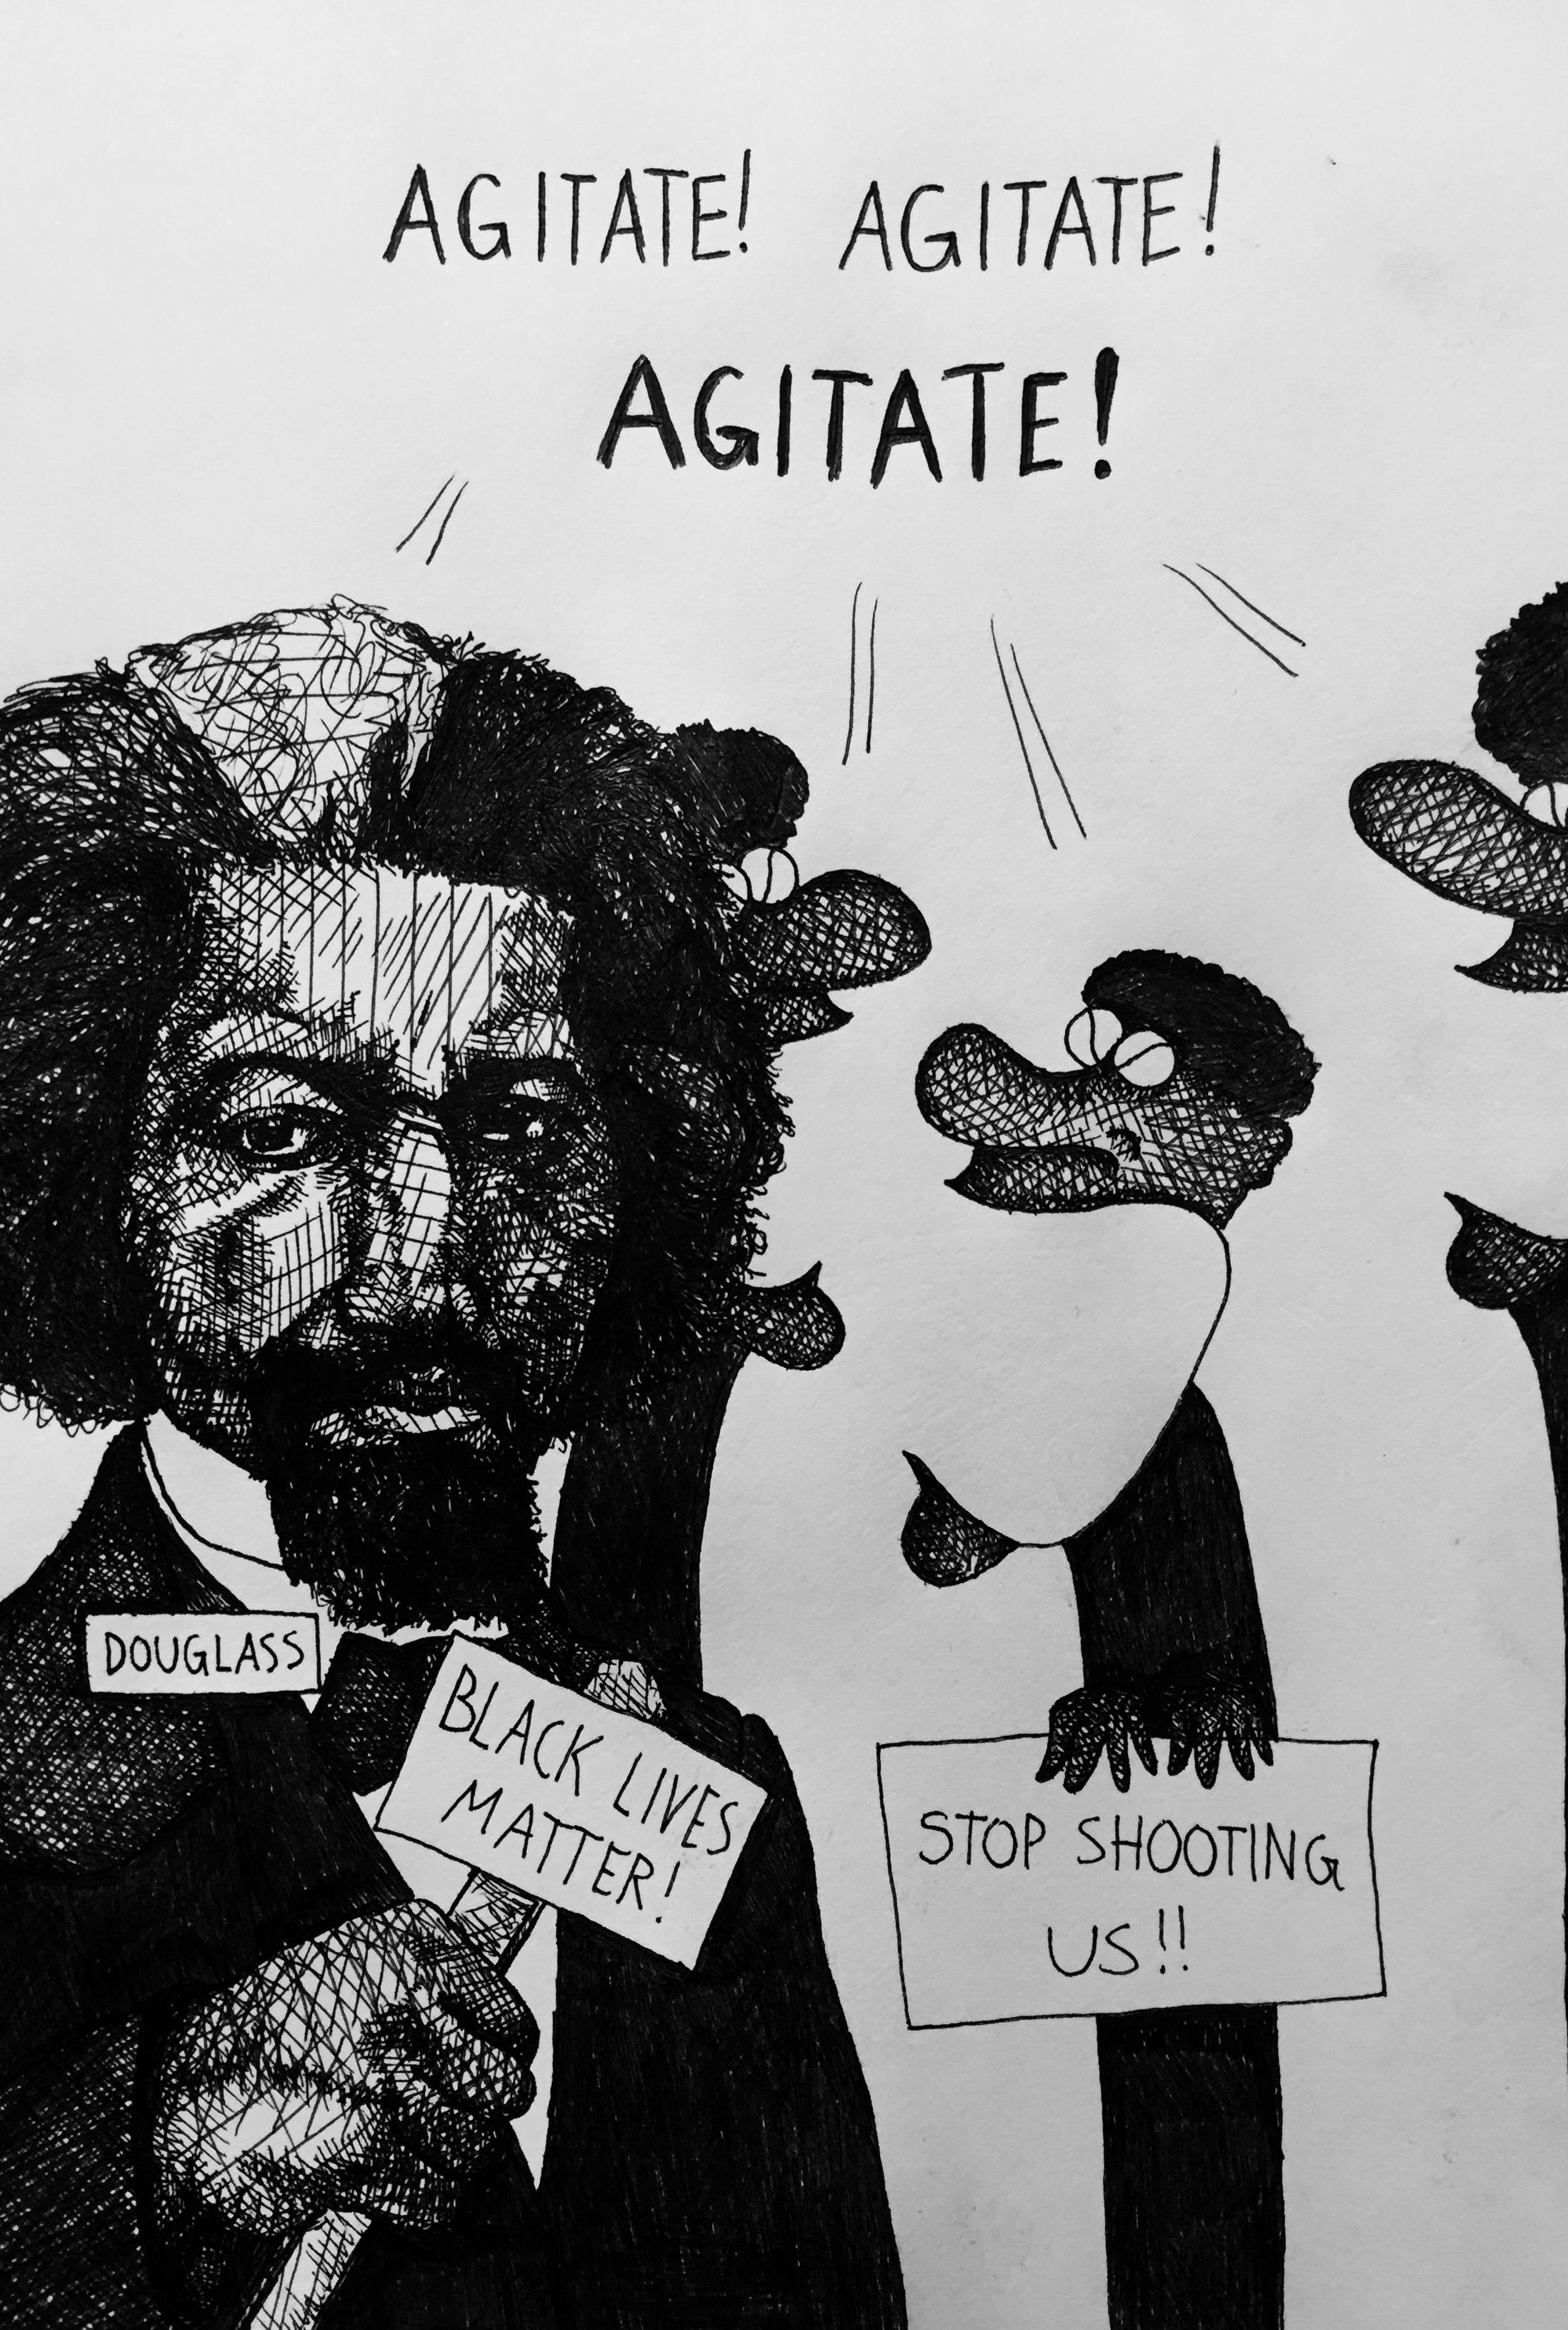 AGITATE! AGITATE!
AGITATE!
DOUGLASS
BLACK LIVES
MATTER!
STOP SHOOTING
US!!